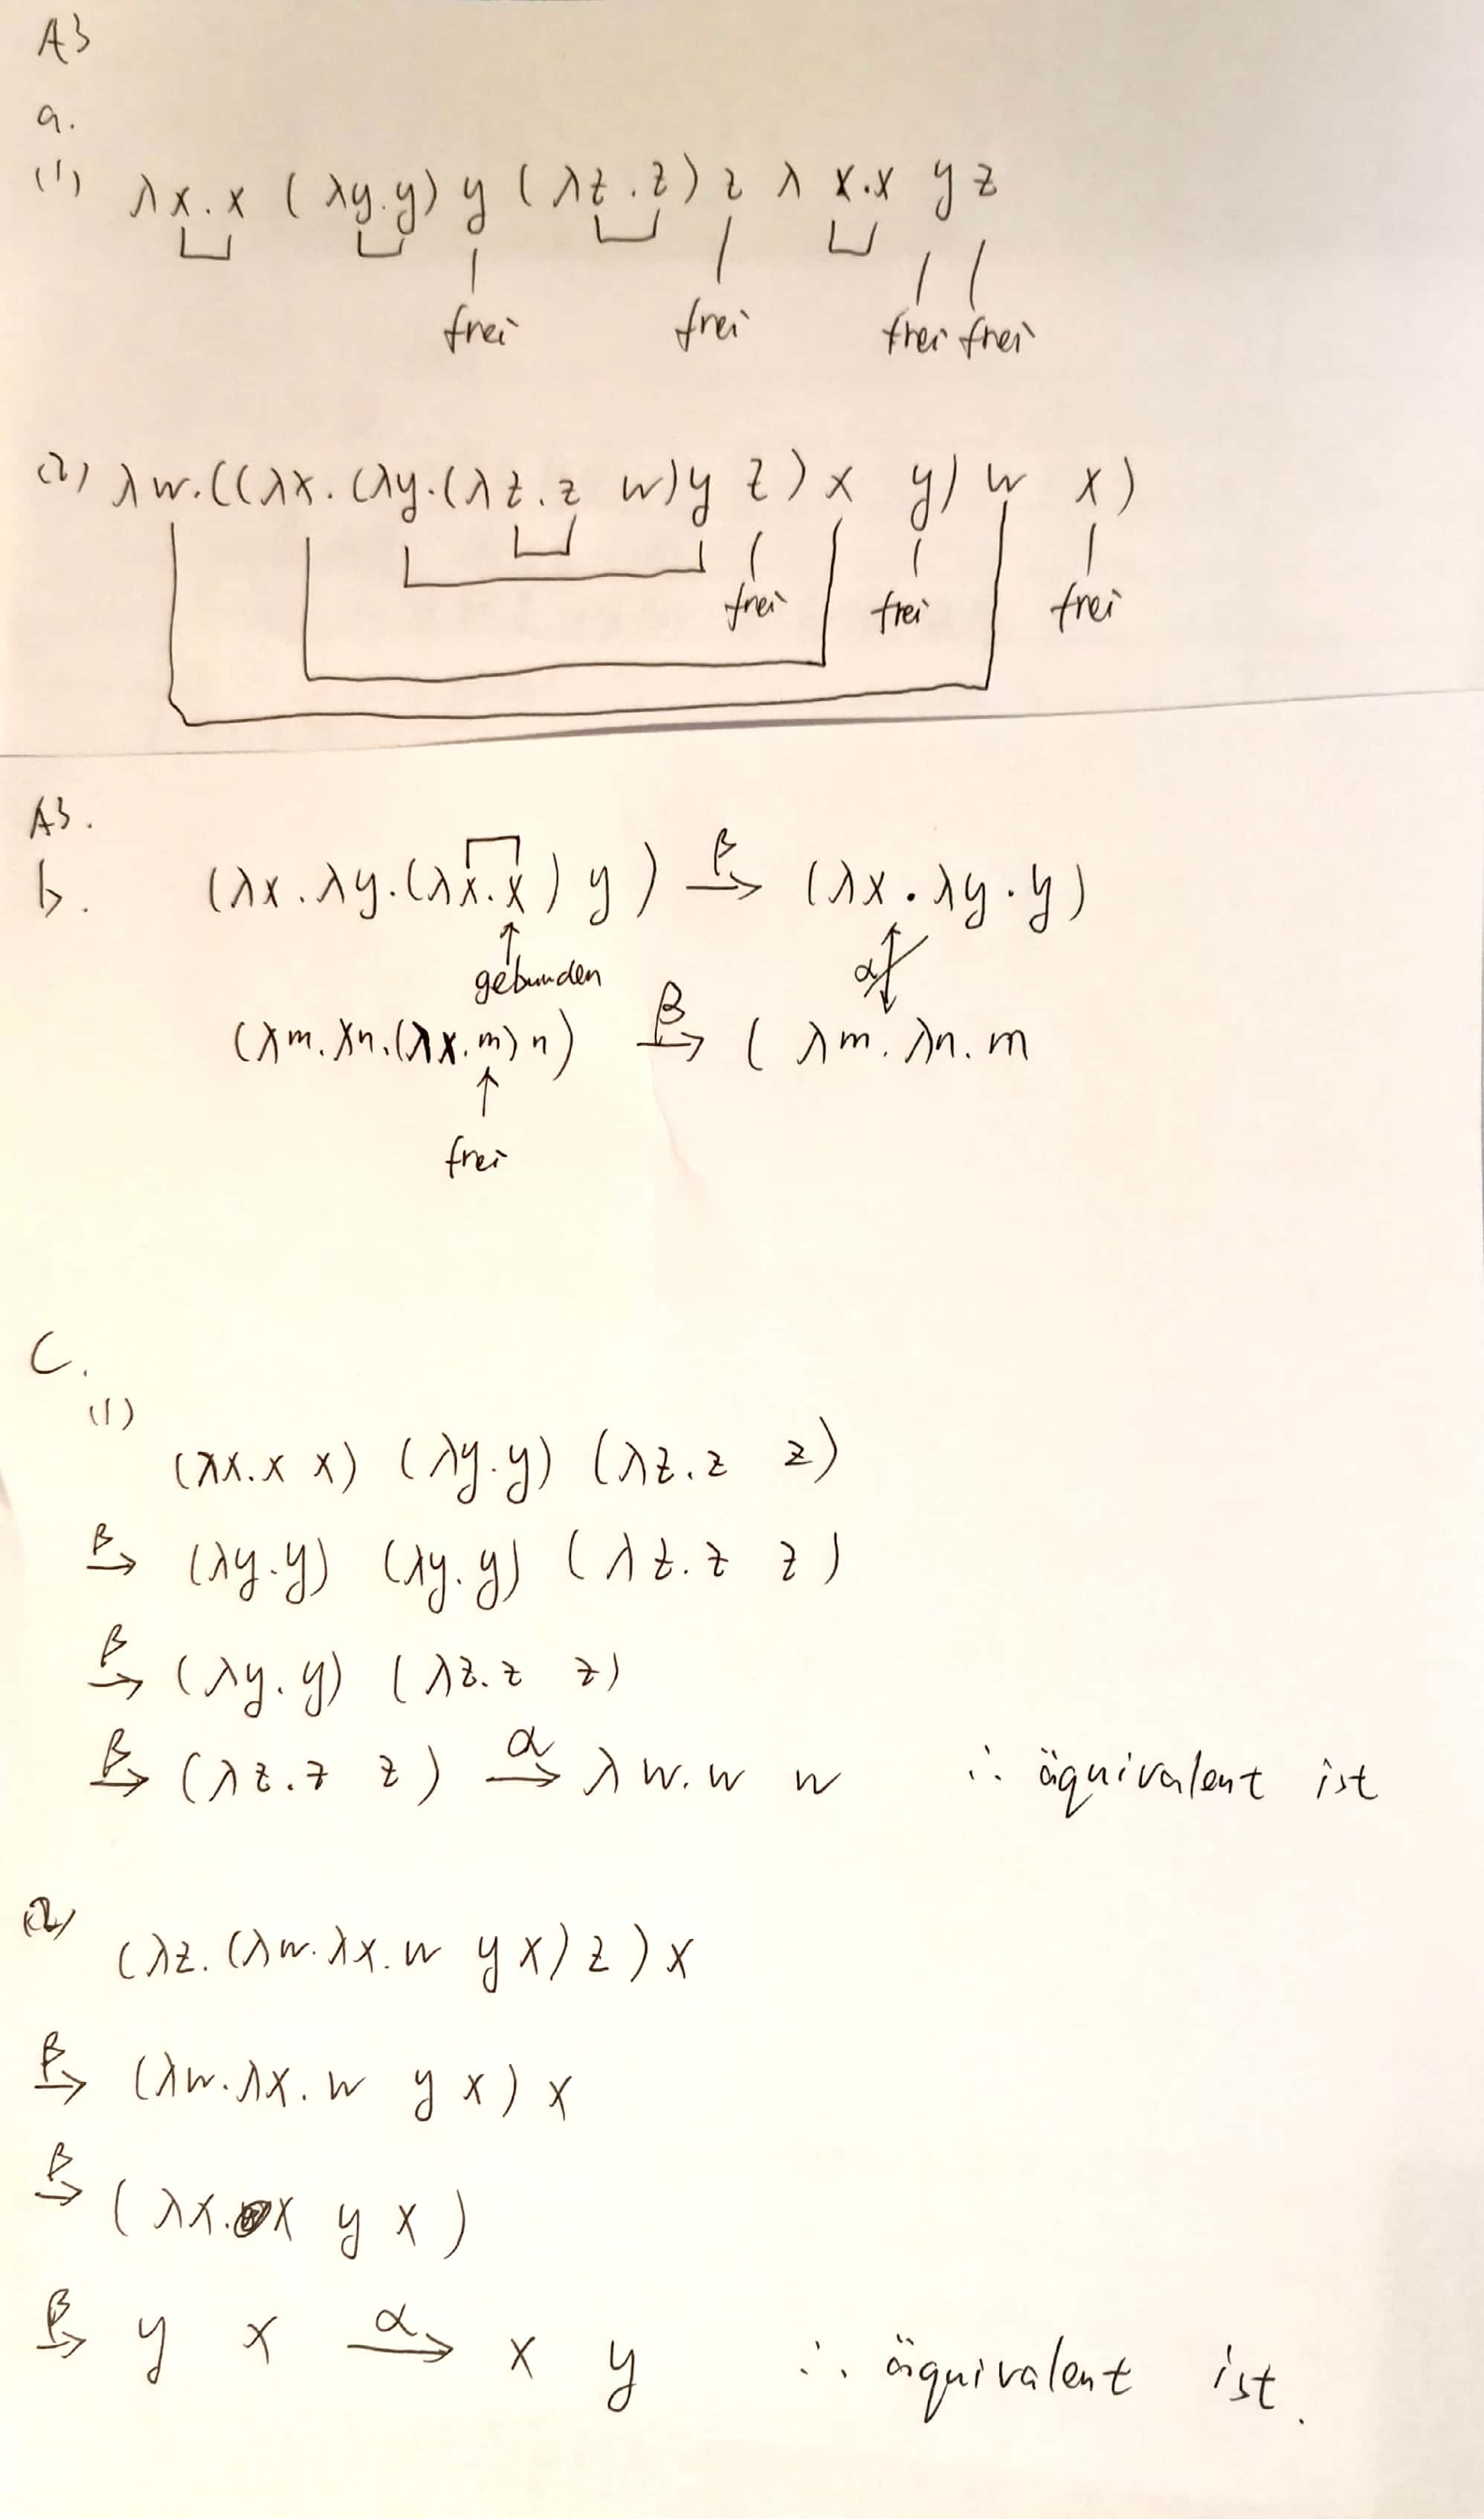 A3
a.
(1) λx.x (λy.y) y (λz.z) z λ x.x y z
frei frei frei frei
(2) λw.((λx.(λy.(λz.z w)y z) x y) w x)
frei frei frei
A3.
b. (λx.λy.(λx.x) y ) β→ (λx.λy.y)
gebunden α
(λm.λn.(λx.m) n) β→ ( λm.λn.m
frei
C.
(1)
(λx.x x) (λy.y) (λz.z z)
β→ (λy.y) (λy.y) (λz.z z)
β→ (λy.y) (λz.z z)
β→ (λz.z z) α→ λw.w w ∴ äquivalent ist
(2)
(λz.(λw.λx.w y x) z ) x
β→ (λw.λx.w y x) x
β→ (λx.x y x )
β→ y x α→ x y ∴ äquivalent ist.